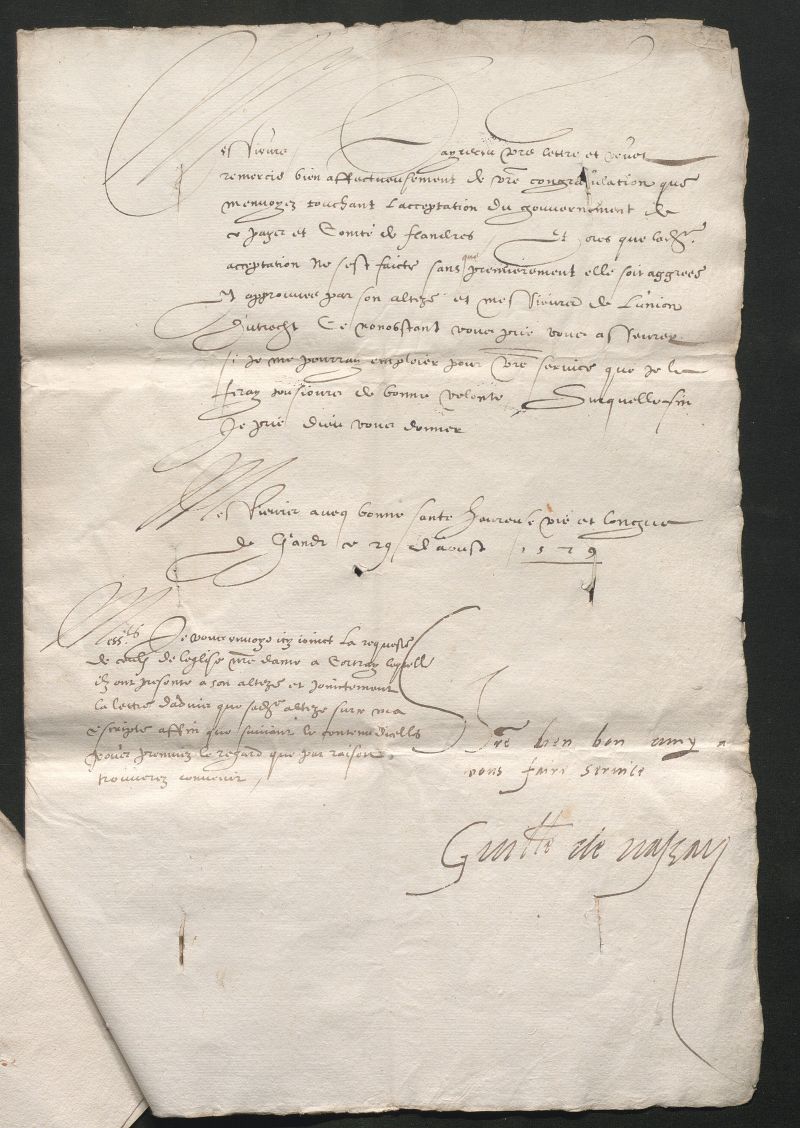 Messieurs J'ay receu vre lettre et vous
remercie bien affectueusement de vre congratulation que
m'envoyez touchant l'acceptation du gouvernement de
ce payez et Comté de flandres Et ores que ladte
acceptation ne s'est faicte sans que premierement elle soit aggreee
Et approuvee par son alteze et messieurs de l'union
d'utrecht Ce nonobstant vous prie vous asseurer
si je me pourray emploier pour vre service que je le
feray tousiours de bonne volonte Surquelle fin
Je prie dieu vous donner
Messieurs avecq bonne sante heureuse vie et longue
de Gandt ce 29 d'aoust 1579
Messrs Je vous envoye icy joinct la requeste
de ceulx de l'eglise nre dame a Cortray laquelle
ilz ont presente a son alteze et joinctement
la lettre d'advis que sadte alteze sur ce m'a
escripte affin que suivant le contenu d'icelle
prenniez le regard que par raison
trouverez convenir
Vre bien bon amy a
vous faire service
Guille de nassau